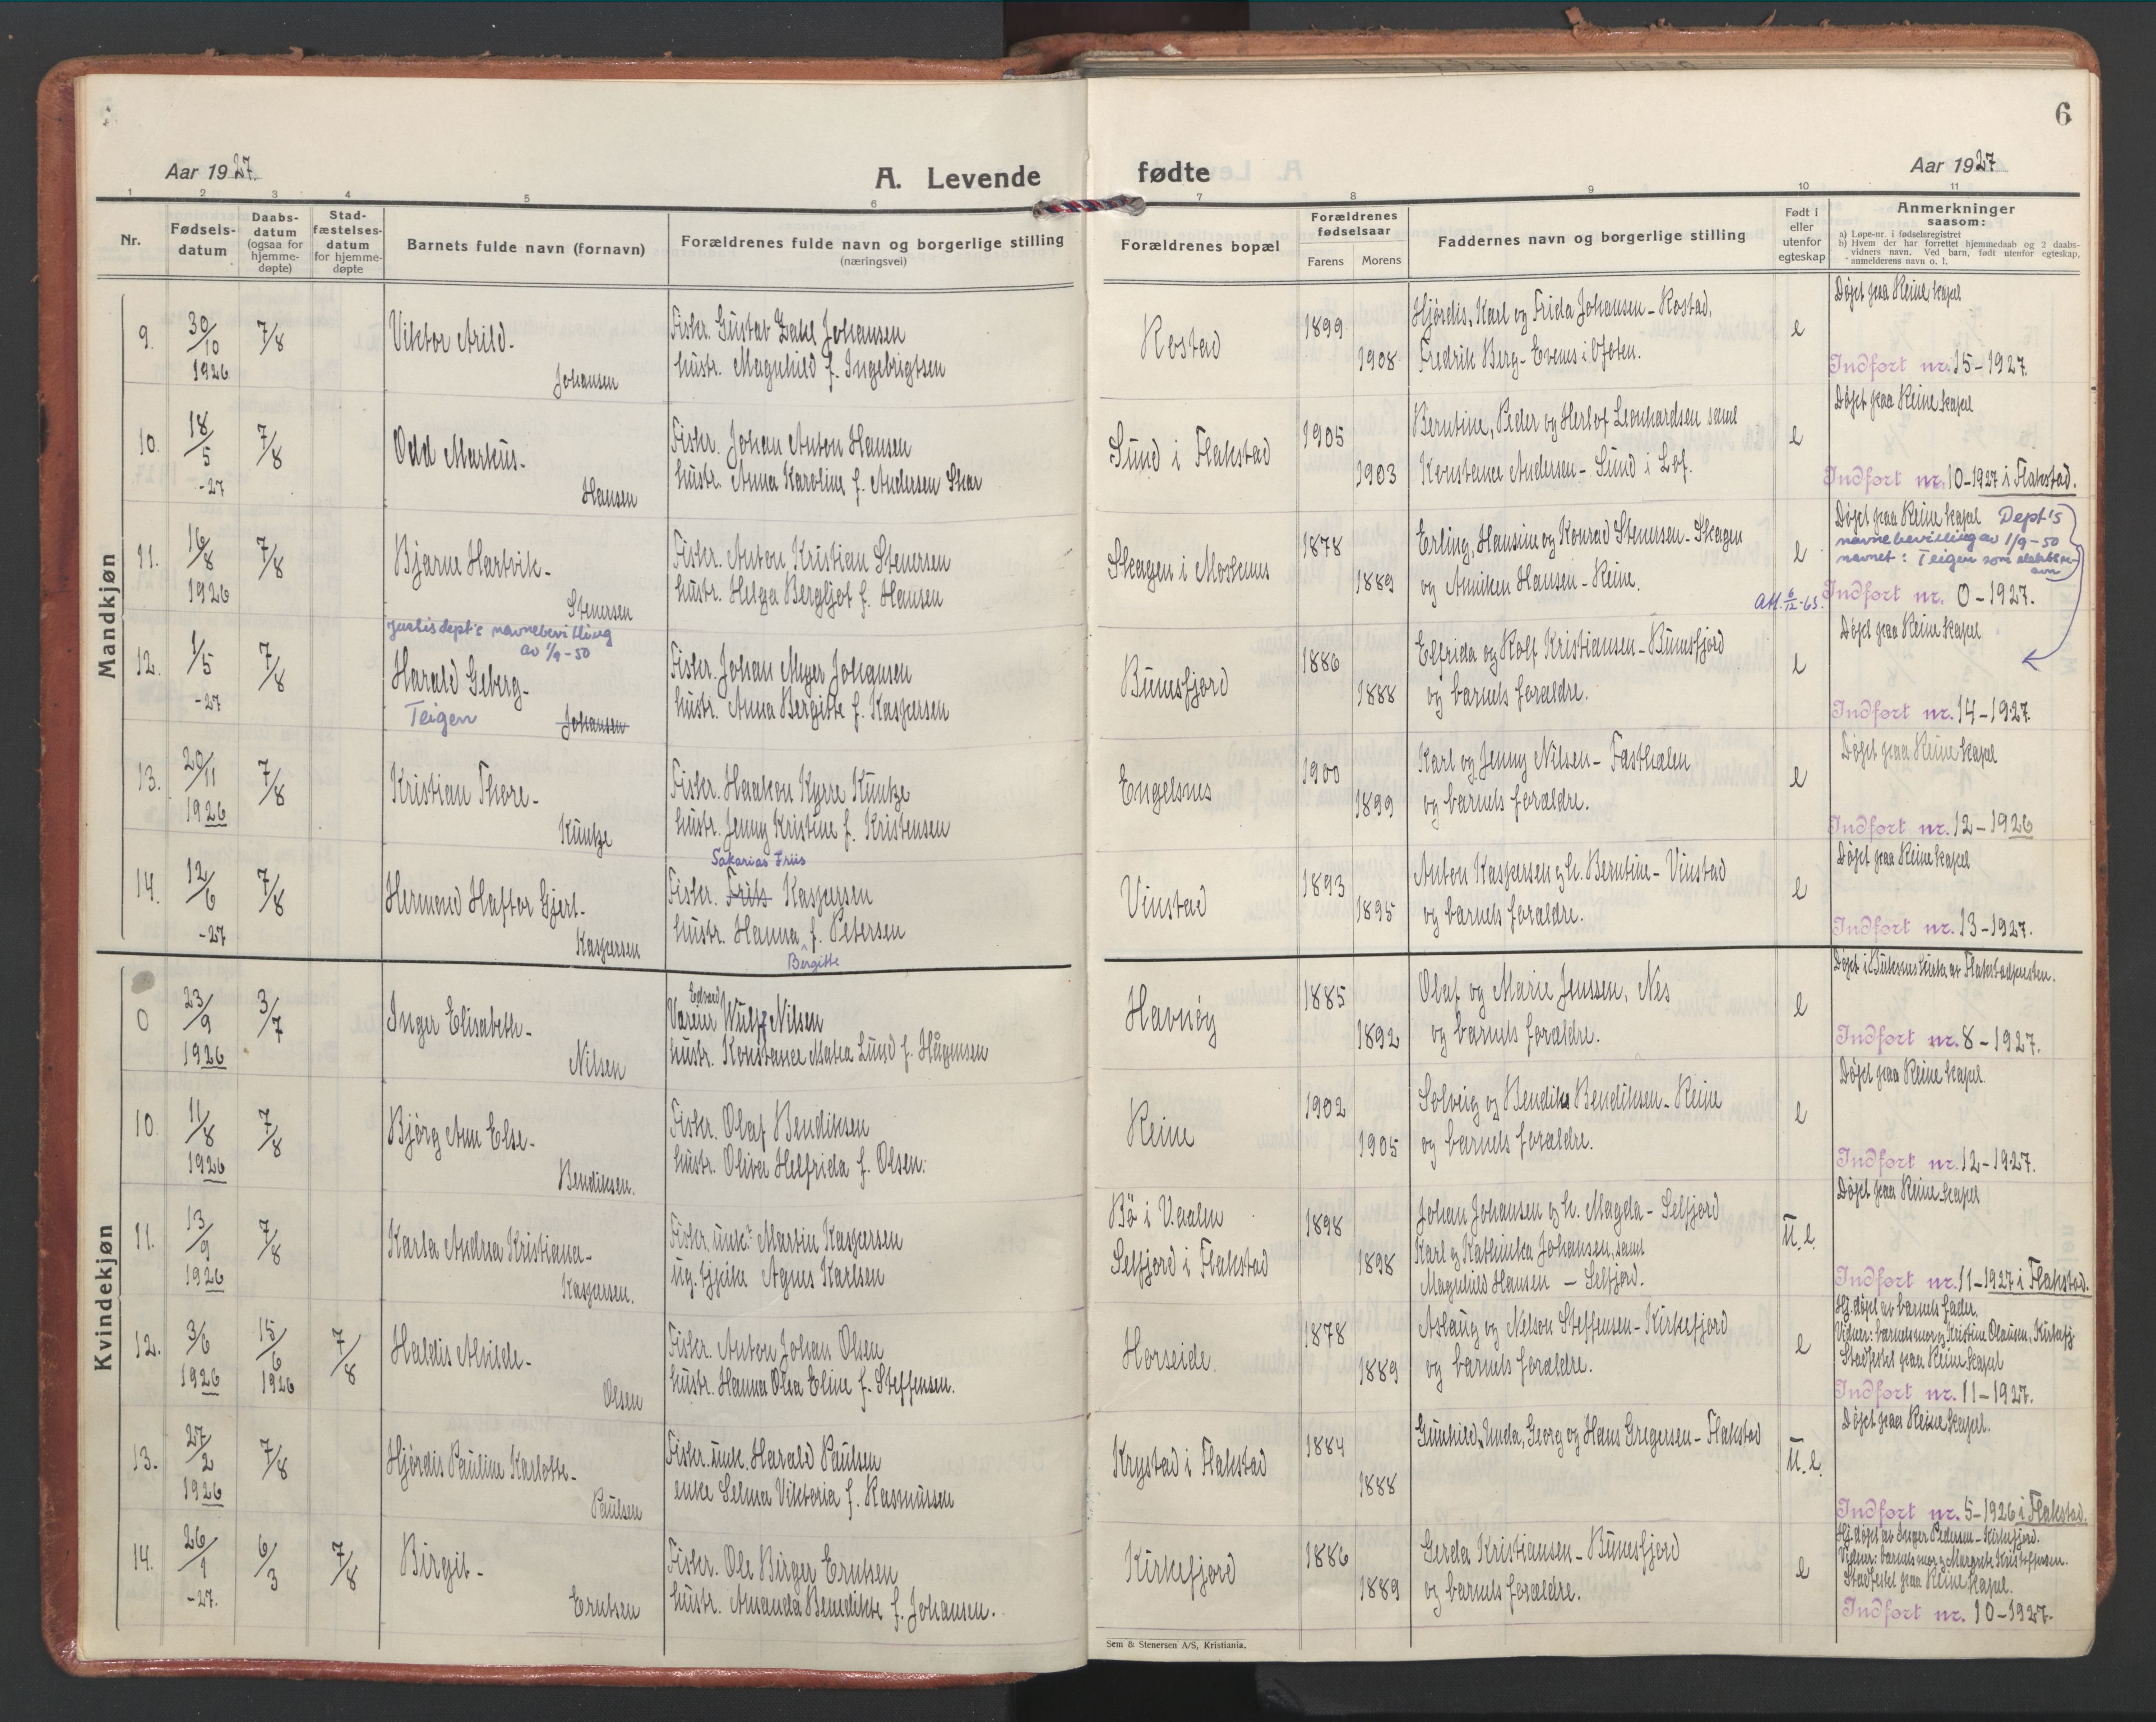 6
Aar 1927.
A. Levende
fødte
Aar 1927
1 2 3 4 5 6 7 8 9 10 11
Nr.
Fødsels-
datum
Daabs-
datum
(ogsaa for
hjemme-
døpte)
Stad-
fæstelses-
datum
for hjemme-
døpte
Barnets fulde navn (fornavn)
Forældrenes fulde navn og borgerlige stilling
(næringsvei)
Forældrenes bopæl
Forældrenes
fødselsaar
Farens Morens
Faddernes navn og borgerlige stilling
Født i
eller
utenfor
egteskap
Anmerkninger
saasom:
a) Løpe-nr. i fødselsregistret
b) Hvem der har forrettet hjemmedaab og 2 daabs-
vidners navn. Ved barn, født utenfor egteskap,
anmelderens navn o. l.
Mandkjøn
9. 30/10 1926 7/8
Viktor Arild-
Johansen
Fiskr. Gustav Dahl Johansen
hustr. Magnhild f. Ingebrigtsen
Rostad
1899
1908
Hjørdis, Karl og Frida Johansen - Rostad,
Fredrik Berg - Evenes i Ofoten.
e
Døpt paa Reine kapel
Indført nr. 15-1927.
10. 18/5 -27 7/8
Odd Markus-
Hansen
Fiskr. Johan Anton Hansen
hustr. Anna Karoline f. Andersen Skar
Sund i Flakstad
1905
1903
Berntine, Peder og Herlof Leonhardsen samt
Konstance Andersen - Sund i Lof.
e
Døpt paa Reine kapel
Indført nr. 10-1927 i Flakstad.
11. 16/8 1926 7/8
Bjarne Hartvik-
Stenersen
Fiskr. Anton Kristian Stenersen
hustr. Helga Bergljot f. Hansen
Skagen i Moskenes
1878
1889
Erling, Hansine og Konrad Stenersen - Skagen
og Anniken Hansen - Reine.
e
Døpt paa Reine kapel Dept's
navnebevilling av 1/9-50
navnet: Teigen som slektsna-
avn
Att. 6/12-63.
Indført nr. 0-1927.
Justisdept's navnebevilling
av 1/9-50
12. 1/5 -27 7/8
Harald Geberg-
Teigen Johansen
Fiskr. Johan Meyer Johansen
hustr. Anna Bergitte f. Kaspersen
Bunesfjord
1886
1888
Elfrida og Rolf Kristiansen - Bunesfjord
og barnets forældre.
e
Døpt paa Reine kapel
Indført nr. 14-1927.
13. 20/11 1926 7/8
Kristian Thore-
Kuntze
Fiskr. Haakon Kyrre Kuntze
hustr. Jenny Kristine f. Kristensen
Engelsnes
1900
1899
Karl og Jenny Nilsen - Fasthælen
og barnets forældre.
e
Døpt paa Reine kapel
Indført nr. 12-1926
14. 12/6 -27 7/8
Hermond Haftor Gjert-
Kaspersen
Sakarias Friis
Fiskr. Frits Kaspersen
hustr. Hanna f. Petersen
Bergitte
Vinstad
1893
1895
Anton Kaspersen og h. Berntine - Vinstad
og barnets forældre.
e
Døpt paa Reine kapel
Indført nr. 13-1927.
Kvindekjøn
0 23/9 1926 3/7
Inger Elisabeth-
Nilsen
Edvard
Væreier Wulff Nilsen
hustr. Konstance Matea Lund f. Hågensen
Havnøy
1885
1892
Olaf og Marie Jenssen, Nes
og barnets forældre.
e
Døpt i Buksnes kirke av Flakstadpresten.
Indført nr. 8-1927.
10. 11/8 1926 7/8
Bjørg Ann Else-
Bendiksen.
Fiskr. Olaf Bendiksen
hustr. Oliva Helfrida f. Olsen.
Reine
1902
1905
Solveig og Bendiks Bendiksen - Reine
og barnets forældre.
e
Døpt paa Reine kapel.
Indført nr. 12-1927.
11. 13/9 1926 7/8
Karla Andrea Kristiana-
Kaspersen.
Fiskr. unk. Martin Kaspersen
ug. pike Agnes Karlsen
Bø i V.aalen
Selfjord i Flakstad
1898
1898
Johan Johansen og h. Magda - Selfjord
Karl og Kathinka Johansen, samt
Magnhild Hansen - Selfjord.
U.e.
Døpt paa Reine kapel
Indført nr. 11-1927 i Flakstad.
12. 3/6 1926 15/6 1926 7/8
Haldis Alvilde-
Olsen
Fiskr. Anton Johan Olsen
hustr. Hanna Olea Eline f. Steffensen.
Horseide.
1878
1889
Aslaug og Nelson Steffensen - Kirkefjord
og barnets forældre.
e
Hj.døpt av barnets fader.
Vidner: barnets mor og Kristine Olausen, Kirkefj.
Stadfestet paa Reine kapel
Indført nr. 11-1927.
13. 27/2 1926 7/8
Hjørdis Pauline Karlotte-
Paulsen
Fiskr. unk. Harald Paulsen
enke Selma Viktoria f. Rasmussen
Krystad i Flakstad
1884
1888
Gunhild, Anda, Georg og Hans Gregersen - Flakstad
U.e.
Døpt paa Reine Kapel.
Indført nr. 5-1926 i Flakstad.
14. 26/1 -27. 6/3 7/8
Birgit-
Erntsen
Fiskr. Ole Birger Erntsen
hustr. Amanda Benedikte f. Johansen.
Kirkefjord
1886
1889
Gerda Kristiansen - Bunesfjord
og barnets forældre.
e
Hj.døpt av Inger Pedersen - Kirkefjord.
Vidner: barnets mor og Margrete Kristoffersen.
Stadfestet paa Reine kapel.
Indført nr. 10-1927.
Sem & Stenersen A/S, Kristiania.